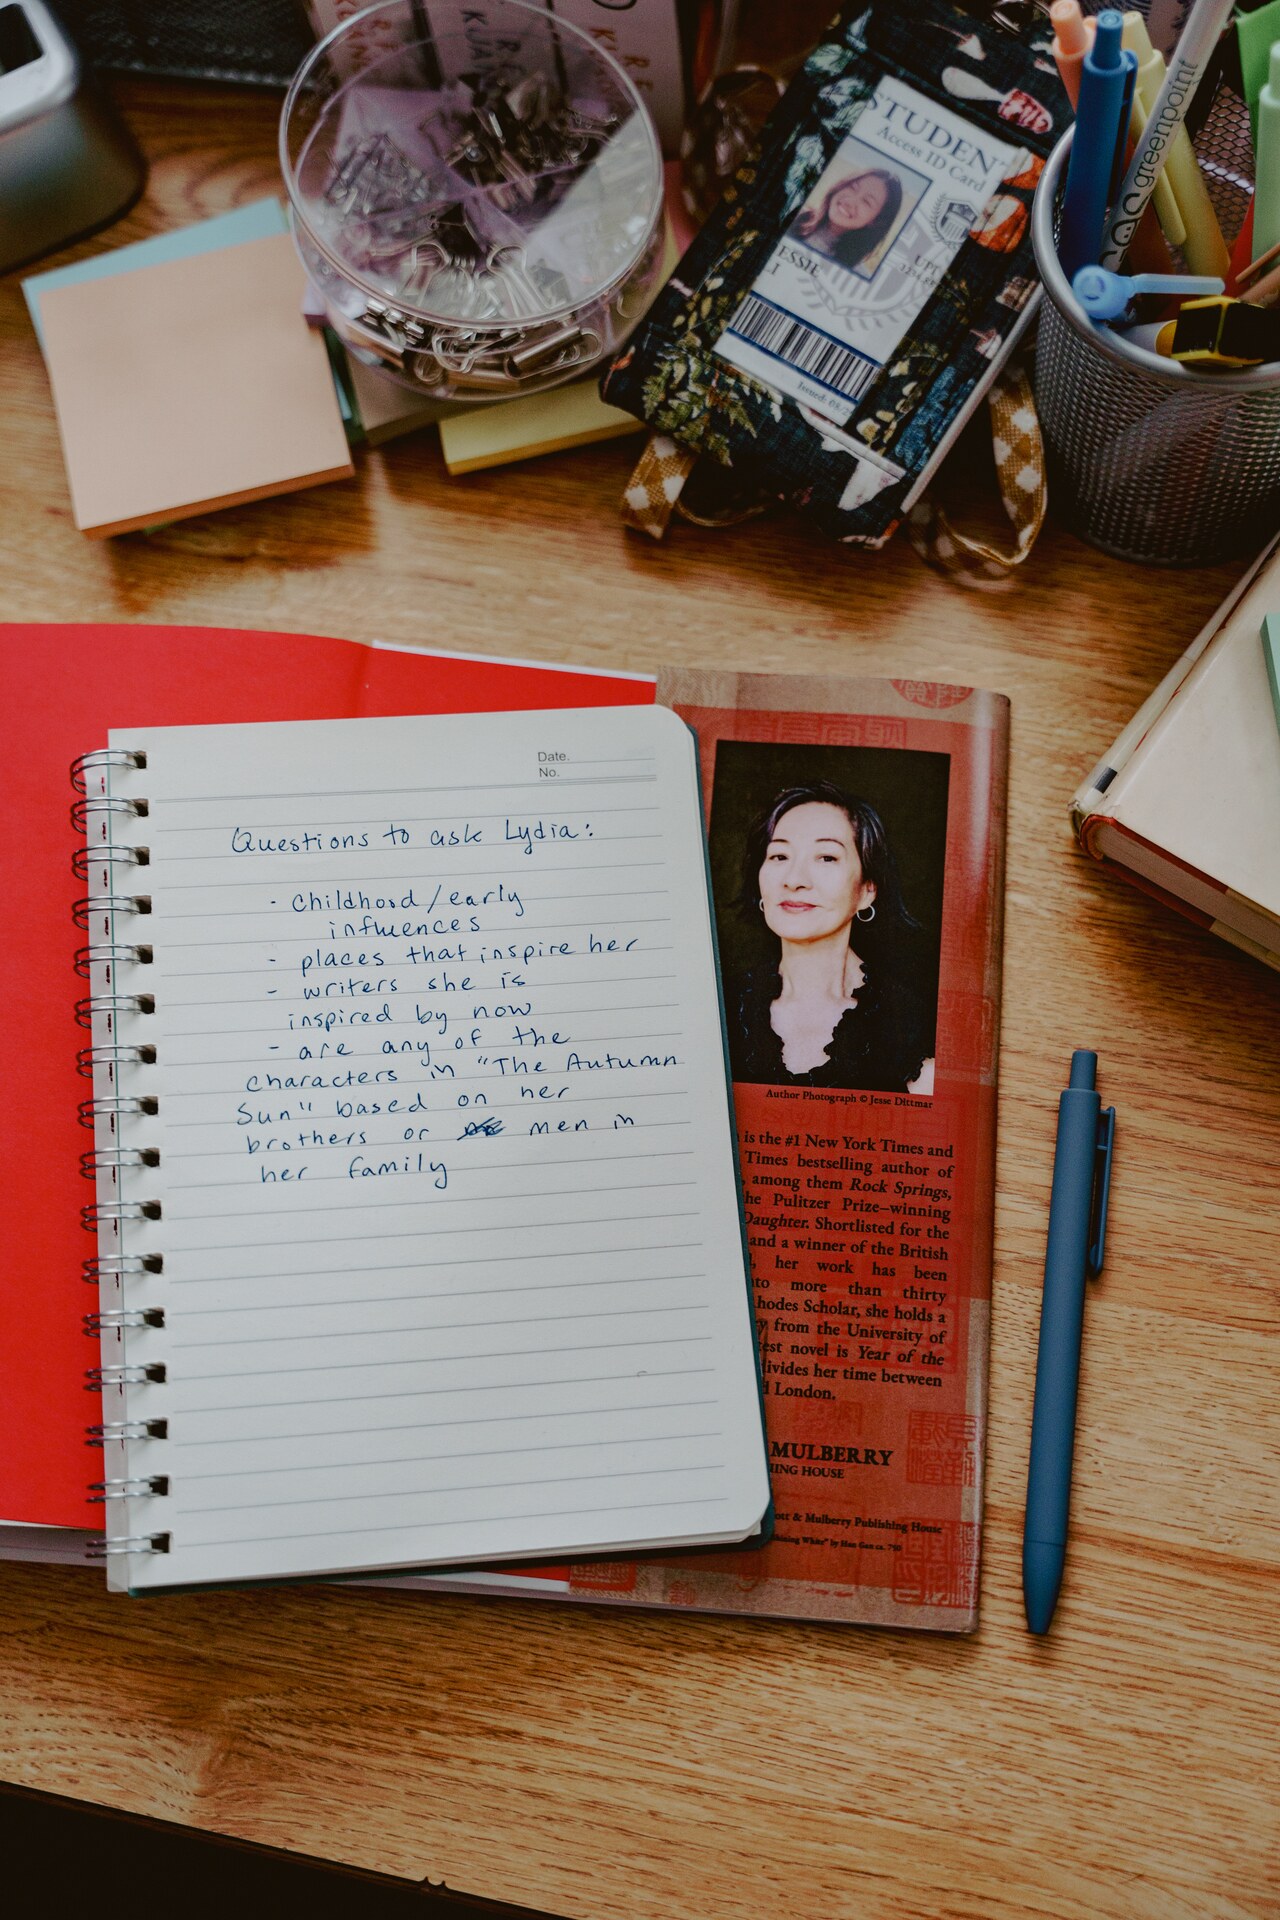 STUDEN
Access ID Card
ESSIE
LI
Issued:
greenpoint
Date.
No.
Questions to ask Lydia:
- Childhood/early
influences
- places that inspire her
- writers she is
inspired by now
- are any of the
characters in "The Autumn
Sun" based on her
brothers or men in
her family
Author Photograph © Jesse Dittmar
is the #1 New York Times and
Times bestselling author of
, among them Rock Springs,
he Pulitzer Prize–winning
Daughter. Shortlisted for the
and a winner of the British
, her work has been
to more than thirty
hodes Scholar, she holds a
y from the University of
test novel is Year of the
ivides her time between
d London.
MULBERRY
ING HOUSE
ott & Mulberry Publishing House
hining White" by Hou Guo ca. 750